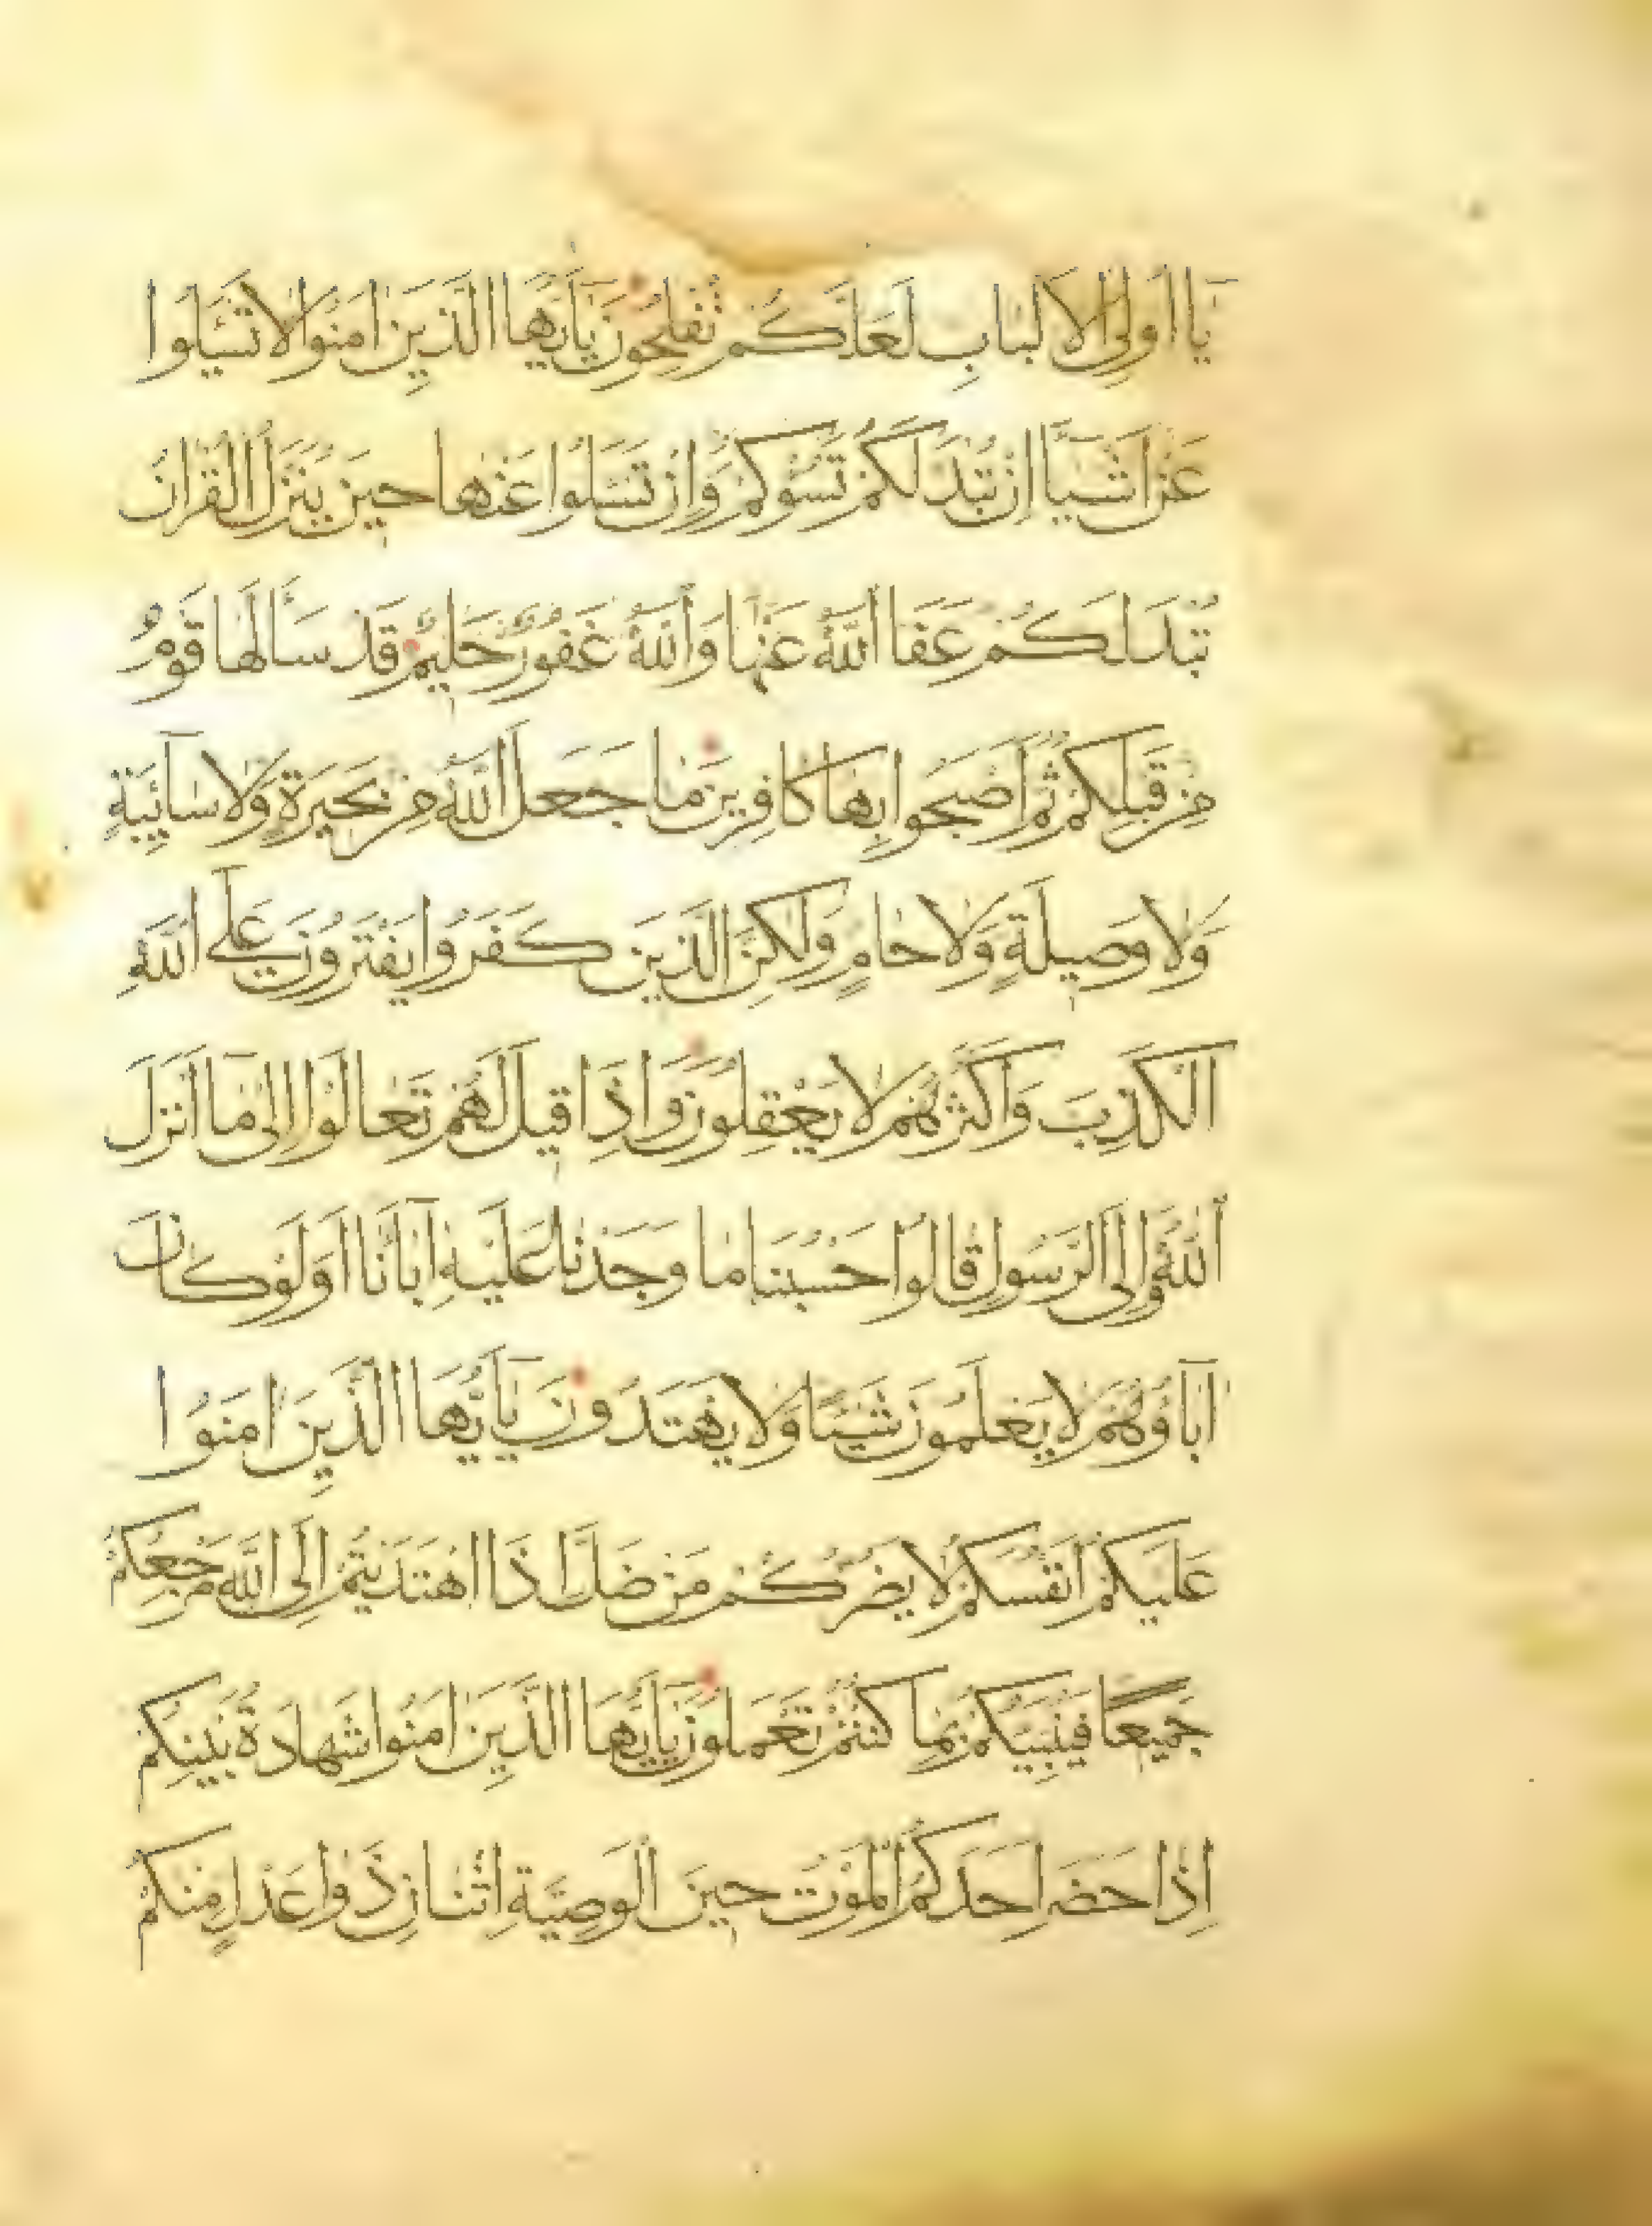 يَا اُولِى الْاَلْبَابِ لَعَلَّكُمْ تُفْلِحُونَ يَآاَيُّهَا الَّذِينَ اٰمَنُوا لَا تَسْئَلُوا
عَنْ اَشْيَآءَ اِنْ تُبْدَ لَكُمْ تَسُؤْكُمْ وَاِنْ تَسْئَلُوا عَنْهَا حِينَ يُنَزَّلُ الْقُرْاٰنُ
تُبْدَ لَكُمْ عَفَا اللّٰهُ عَنْهَا وَاللّٰهُ غَفُورٌ حَلِيمٌ قَدْ سَاَلَهَا قَوْمٌ
مِنْ قَبْلِكُمْ ثُمَّ اَصْبَحُوا بِهَا كَافِرِينَ مَا جَعَلَ اللّٰهُ مِنْ بَحِيرَةٍ وَلَا سَآئِبَةٍ
وَلَا وَصِيلَةٍ وَلَا حَامٍ وَلٰكِنَّ الَّذِينَ كَفَرُوا يَفْتَرُونَ عَلَى اللّٰهِ
الْكَذِبَ وَاَكْثَرُهُمْ لَا يَعْقِلُونَ وَاِذَا قِيلَ لَهُمْ تَعَالَوْا اِلٰى مَآ اَنْزَلَ
اللّٰهُ وَاِلَى الرَّسُولِ قَالُوا حَسْبُنَا مَا وَجَدْنَا عَلَيْهِ اٰبَآءَنَا اَوَلَوْ كَانَ
اٰبَآؤُهُمْ لَا يَعْلَمُونَ شَيْئًا وَلَا يَهْتَدُونَ يَآاَيُّهَا الَّذِينَ اٰمَنُوا
عَلَيْكُمْ اَنْفُسَكُمْ لَا يَضُرُّكُمْ مَنْ ضَلَّ اِذَا اهْتَدَيْتُمْ اِلَى اللّٰهِ مَرْجِعُكُمْ
جَمِيعًا فَيُنَبِّئُكُمْ بِمَا كُنْتُمْ تَعْمَلُونَ يَآاَيُّهَا الَّذِينَ اٰمَنُوا شَهَادَةُ بَيْنِكُمْ
اِذَا حَضَرَ اَحَدَكُمُ الْمَوْتُ حِينَ الْوَصِيَّةِ اثْنَانِ ذَوَا عَدْلٍ مِنْكُمْ